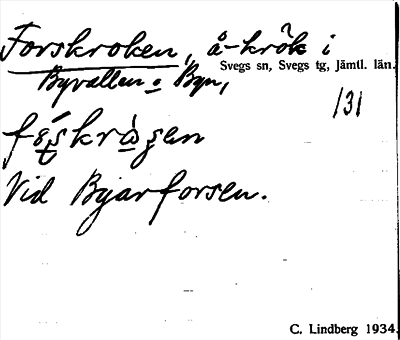 Forskroken, å-krök i
Svegs sn, Svegs tg, Jämtl. län.
Byvallen o Byn,
131
Vid Byarforsen.
C. Lindberg 1934.